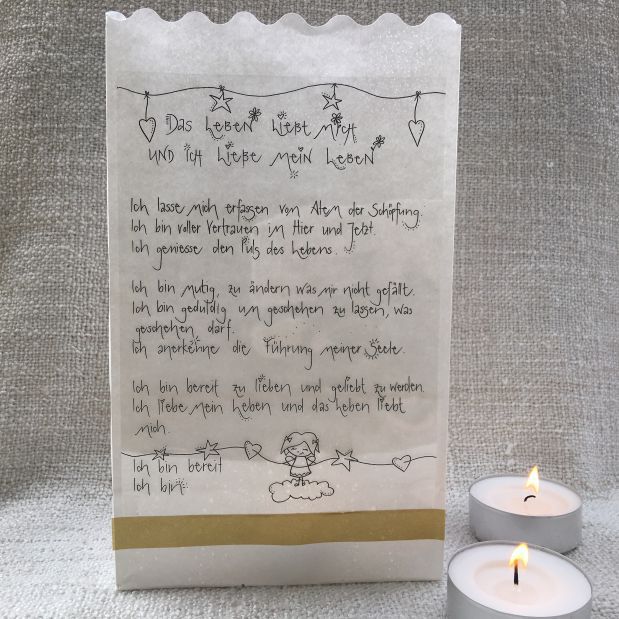 Das Leben liebt mich
und ich liebe mein Leben
Ich lasse mich erfassen vom Atem der Schöpfung.
Ich bin voller Vertrauen im Hier und Jetzt.
Ich geniesse den Puls des Lebens.
Ich bin mutig, zu ändern was mir nicht gefällt.
Ich bin geduldig um geschehen zu lassen, was
geschehen darf.
Ich anerkenne die Führung meiner Seele.
Ich bin bereit zu lieben und geliebt zu werden.
Ich liebe mein Leben und das Leben liebt
mich.
Ich bin bereit
Ich bin